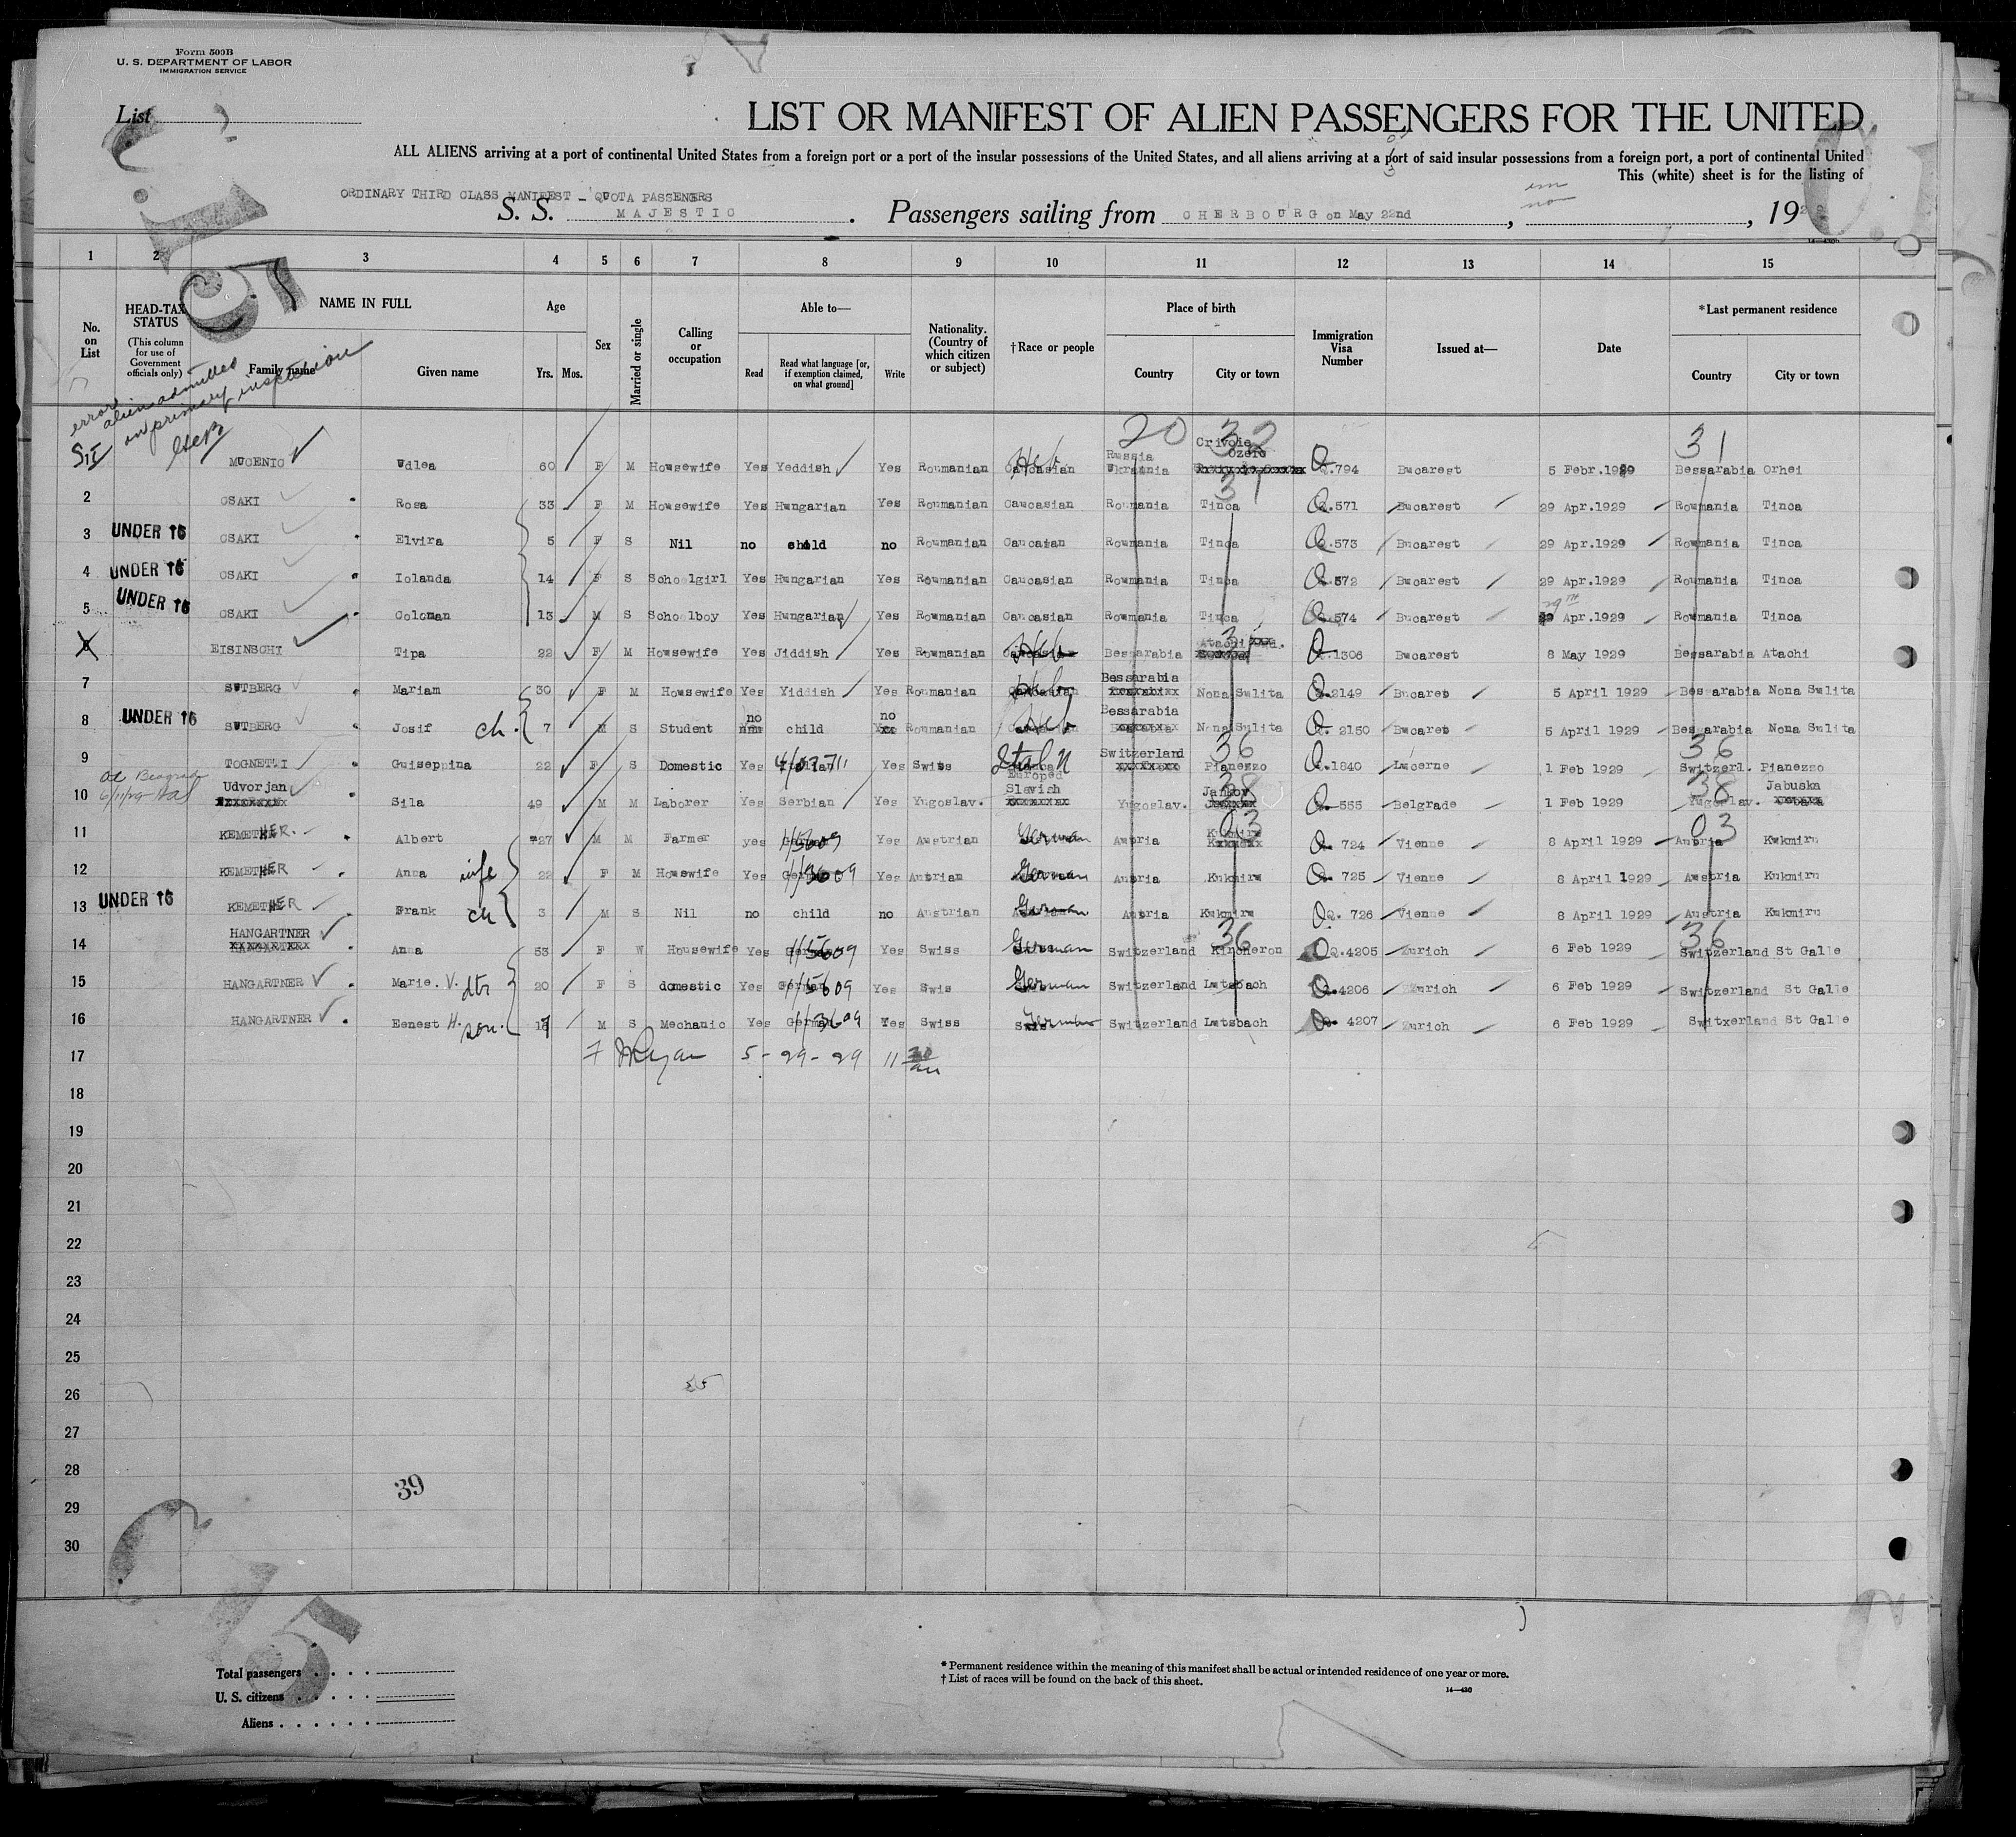 Form 500B
U. S. DEPARTMENT OF LABOR
IMMIGRATION SERVICE
List
LIST OR MANIFEST OF ALIEN PASSENGERS FOR THE UNITED
ALL ALIENS arriving at a port of continental United States from a foreign port or a port of the insular possessions of the United States, and all aliens arriving at a port of said insular possessions from a foreign port, a port of continental United
This (white) sheet is for the listing of
ORDINARY THIRD CLASS MANIFEST - QUOTA PASSENGERS
S. S. MAJESTIC. Passengers sailing from CHERBOURG on May 22nd, , 192
14-430b
1 2 3 4 5 6 7 8 9 10 11 12 13 14 15
No. on List
HEAD-TAX STATUS (This column for use of Government officials only)
NAME IN FULL Family name Given name
Age Yrs. Mos.
Sex
Married or single
Calling or occupation
Able to— Read Read what language [or, if exemption claimed, on what ground] Write
Nationality. (Country of which citizen or subject)
†Race or people
Place of birth Country City or town
Immigration Visa Number
Issued at—
Date
*Last permanent residence Country City or town
error
alien admitted
on primary inspection
20 32 31
SI MUCENIC Udlea 60 F M Housewife Yes Yeddish Yes Roumanian Heb Russia Ukrainia Crivoie Ozero Q.794 Bucarest 5 Febr.1929 Bessarabia Orhei
2 CSAKI Rosa 33 F M Housewife Yes Hungarian Yes Roumanian Caucasian Roumania Tinca Q.571 Bucarest 29 Apr.1929 Roumania Tinca
3 UNDER 16 CSAKI Elvira 5 F S Nil no child no Roumanian Caucasian Roumania Tinca Q.573 Bucarest 29 Apr.1929 Roumania Tinca
4 UNDER 16 CSAKI Iolanda 14 F S Schoolgirl Yes Hungarian Yes Roumanian Caucasian Roumania Tinca Q.572 Bucarest 29 Apr.1929 Roumania Tinca
5 UNDER 16 CSAKI Coloman 13 M S Schoolboy Yes Hungarian Yes Roumanian Caucasian Roumania Tinca Q.574 Bucarest 29 Apr.1929 Roumania Tinca
6 EISINSCHI Tipa 22 F M Housewife Yes Jiddish Yes Roumanian Heb Bessarabia Atachi Q.1306 Bucarest 8 May 1929 Bessarabia Atachi
7 SUTBERG Mariam 30 F M Housewife Yes Yiddish Yes Roumanian Heb Bessarabia Nona Sulita Q.2149 Bucarest 5 April 1929 Bessarabia Nona Sulita
8 UNDER 16 SUTBERG Josif ch. 7 M S Student no child no Roumanian Heb Bessarabia Nona Sulita Q.2150 Bucarest 5 April 1929 Bessarabia Nona Sulita
9 TOGNETTI Guiseppina 22 F S Domestic Yes Italian Yes Swiss Ital N Switzerland Pianezzo 36 Q.1840 Lucerne 1 Feb 1929 Switzerl. Pianezzo 36
10 Udvorjan Sila 49 M M Laborer Yes Serbian Yes Yugoslav. Slavish Yugoslav. Jankov 38 Q.555 Belgrade 1 Feb 1929 Yugoslav. Jabuska 38
11 KEMETHER. Albert 27 M M Farmer yes 115609 Yes Austrian German Austria Kukmirn 03 Q. 724 Vienne 8 April 1929 Austria Kukmirn 03
12 KEMETHER Anna wife 22 F M Housewife Yes 115609 Yes Autrian German Austria Kukmirn Q. 725 Vienne 8 April 1929 Austria Kukmirn
13 UNDER 16 KEMETHER Frank ch 3 M S Nil no child no Austrian German Austria Kukmirn Q. 726 Vienne 8 April 1929 Austria Kukmirn
14 HANGARTNER Anna 53 F W Housewife Yes 115609 Yes Swiss German Switzerland Kircheron 36 Q.4205 Zurich 6 Feb 1929 Switzerland St Galle 36
15 HANGARTNER Marie. V. dtr 20 F S domestic Yes 115609 Yes Swis German Switzerland Lutsbach Q.4206 Zurich 6 Feb 1929 Switzerland St Galle
16 HANGARTNER Eenest H. son. M S Mechanic Yes 115609 Yes Swiss German Switzerland Lutsbach Q. 4207 Zurich 6 Feb 1929 Switxerland St Galle
17 5-29-29 11 30 am
18
19
20
21
22
23
24
25
26
27
28
29
30
39
Total passengers
U. S. citizens
Aliens
* Permanent residence within the meaning of this manifest shall be actual or intended residence of one year or more.
† List of races will be found on the back of this sheet.
14-430